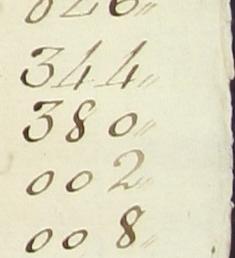 026"
344"
380"
002"
008"